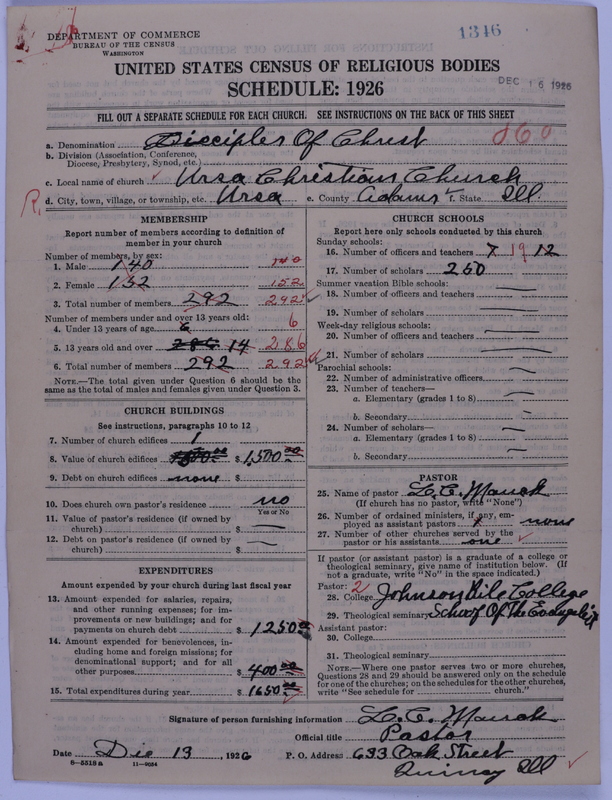 1346
DEPARTMENT OF COMMERCE
BUREAU OF THE CENSUS
WASHINGTON
UNITED STATES CENSUS OF RELIGIOUS BODIES
DEC 16 1926
SCHEDULE: 1926
FILL OUT A SEPARATE SCHEDULE FOR EACH CHURCH. SEE INSTRUCTIONS ON THE BACK OF THIS SHEET
a. Denomination Disciples Of Christ 060
b. Division (Association, Conference, Diocese, Presbytery, Synod, etc.)
c. Local name of church Ursa Christian Church
R. d. City, town, village, or township, etc. Ursa e. County Adams f. State Ill.
MEMBERSHIP
Report number of members according to definition of
member in your church
Number of members, by sex:
1. Male 140 140
2. Female 152 152
3. Total number of members 292 292
Number of members under and over 13 years old:
4. Under 13 years of age 6 6
5. 13 years old and over 286 14 286
6. Total number of members 292 292
NOTE.—The total given under Question 6 should be
same as the total of males and females given under Question 3.
CHURCH BUILDINGS
See instructions, paragraphs 10 to 12
7. Number of church edifices 1
8. Value of church edifices $ 1,500.00
9. Debt on church edifices none $
10. Does church own pastor's residence no
Yes or No
11. Value of pastor's residence (if owned by
church) $
12. Debt on pastor's residence (if owned by
church) $
EXPENDITURES
Amount expended by your church during last fiscal year
13. Amount expended for salaries, repairs,
and other running expenses; for im-
provements or new buildings; and for
payments on church debt $ 1250.00
14. Amount expended for benevolences, in-
cluding home and foreign missions; for
denominational support; and for all
other purposes $ 400.00
15. Total expenditures during year $ 1650.00
CHURCH SCHOOLS
Report here only schools conducted by this church
Sunday schools:
16. Number of officers and teachers 7 19 12
17. Number of scholars 260
Summer vacation Bible schools:
18. Number of officers and teachers
19. Number of scholars
Week-day religious schools:
20. Number of officers and teachers
21. Number of scholars
Parochial schools:
22. Number of administrative officers
23. Number of teachers—
a. Elementary (grades 1 to 8)
b. Secondary
24. Number of scholars—
a. Elementary (grades 1 to 8)
b. Secondary
PASTOR
25. Name of pastor L. C. Mauck
(If church has no pastor, write "None")
26. Number of ordained ministers, if any, em-
ployed as assistant pastors none
27. Number of other churches served by the
pastor or his assistants one
If pastor (or assistant pastor) is a graduate of a college or
theological seminary, give name of institution below. (If
not a graduate, write "No" in the space indicated.)
Pastor: 2
28. College Johnson Bible College
29. Theological seminary School Of The Evangelist
Assistant pastor:
30. College
31. Theological seminary
NOTE.—Where one pastor serves two or more churches,
Questions 28 and 29 should be answered only on the schedule
for one of the churches; on the schedules for the other churches,
write "See schedule for church."
Signature of person furnishing information L. C. Mauck
Official title Pastor
Date Dec 13, 1926 P. O. Address 633 Oak Street
8—5518a 11—9034 Quincy Ill